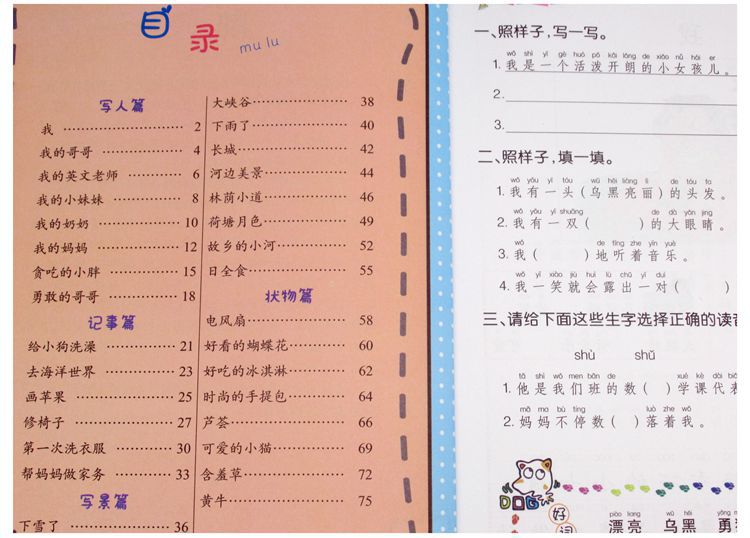 目录
mu lu
写人篇
我 2
我的哥哥 4
我的英文老师 6
我的小妹妹 8
我的奶奶 10
我的妈妈 12
贪吃的小胖 15
勇敢的哥哥 18
记事篇
给小狗洗澡 21
去海洋世界 23
画苹果 25
修椅子 27
第一次洗衣服 30
帮妈妈做家务 33
写景篇
下雪了 36
大峡谷 38
下雨了 40
长城 42
河边美景 44
林荫小道 46
荷塘月色 49
故乡的小河 52
日全食 55
状物篇
电风扇 58
好看的蝴蝶花 60
好吃的冰淇淋 62
时尚的手提包 64
芦荟 66
可爱的小猫 69
含羞草 72
黄牛 75
一、照样子，写一写。
wǒ shì yí gè huó pō kāi lǎng de xiǎo nǚ hái er
1. 我是一个活泼开朗的小女孩儿。
2.
3.
二、照样子，填一填。
wǒ yǒu yì tóu wū hēi liàng lì de tóu fa
1. 我有一头（乌黑亮丽）的头发。
wǒ yǒu yì shuāng de dà yǎn jing
2. 我有一双（ ）的大眼睛。
wǒ de tīng zhe yīn yuè
3. 我（ ）地听着音乐。
wǒ yí xiào jiù huì lù chū yí duì
4. 我一笑就会露出一对（ ）
三、请给下面这些生字选择正确的读音
shù shǔ
tā shì wǒ men bān de xué kè dài biǎo
1. 他是我们班的数（ ）学课代表
mā ma bù tíng luò zhe wǒ
2. 妈妈不停数（ ）落着我。
DOG乐乐
好词
piào liang wū hēi yǒng
漂亮 乌黑 勇